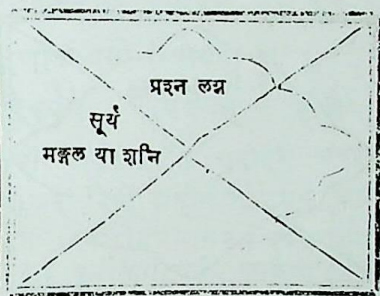 प्रश्न लग्न
सूर्य
मङ्गल या शनि